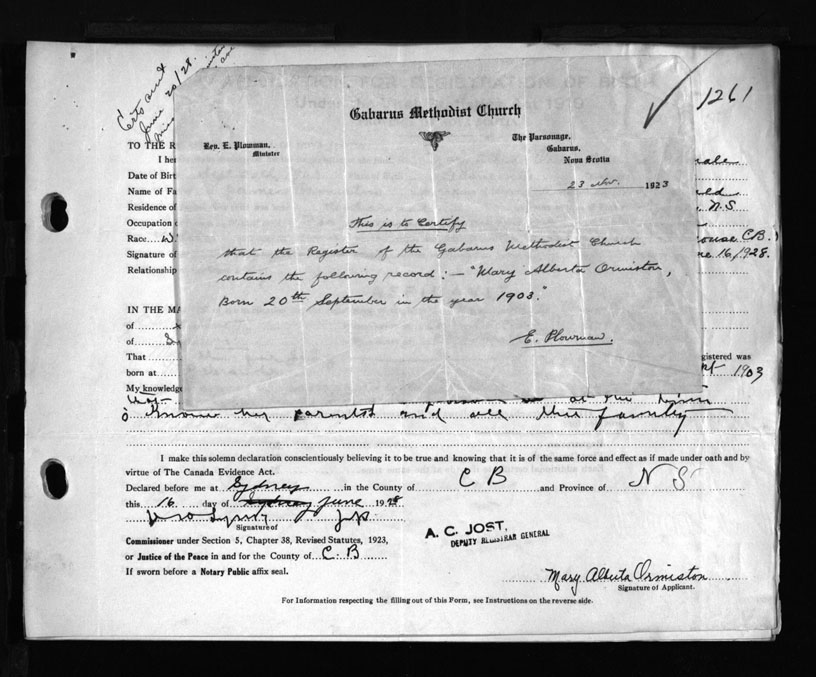 Certs sent
June 20/28.
1261
Gabarus Methodist Church
Rev. E. Plowman,
Minister
The Parsonage,
Gabarus,
Nova Scotia
23 Nov. 1923
This is to Certify
that the Register of the Gabarus Methodist Church
contains the following record:- "Mary Alberta Ormiston,
Born 20th September in the year 1903."
E. Plowman.
TO THE R
I her
Date of Birt
Name of Fa
Residence of
N.S
Occupation o
Race
ouse C.B.)
Signature of
ne 16/928.
Relationship
IN THE MA
of
of
That
gistered was
born at
pt 1903
My knowledge
at the time
& know her parents and all the family
I make this solemn declaration conscientiously believing it to be true and knowing that it is of the same force and effect as if made under oath and by
virtue of The Canada Evidence Act.
Declared before me at Sydney in the County of C B and Province of N S
this 16 day of Sydney June 1928
Signature of
Commissioner under Section 5, Chapter 38, Revised Statutes, 1923,
or Justice of the Peace in and for the County of C. B
If sworn before a Notary Public affix seal.
A. C. JOST,
DEPUTY REGISTRAR GENERAL
Mary Alberta Ormiston
Signature of Applicant.
For Information respecting the filling out of this Form, see Instructions on the reverse side.